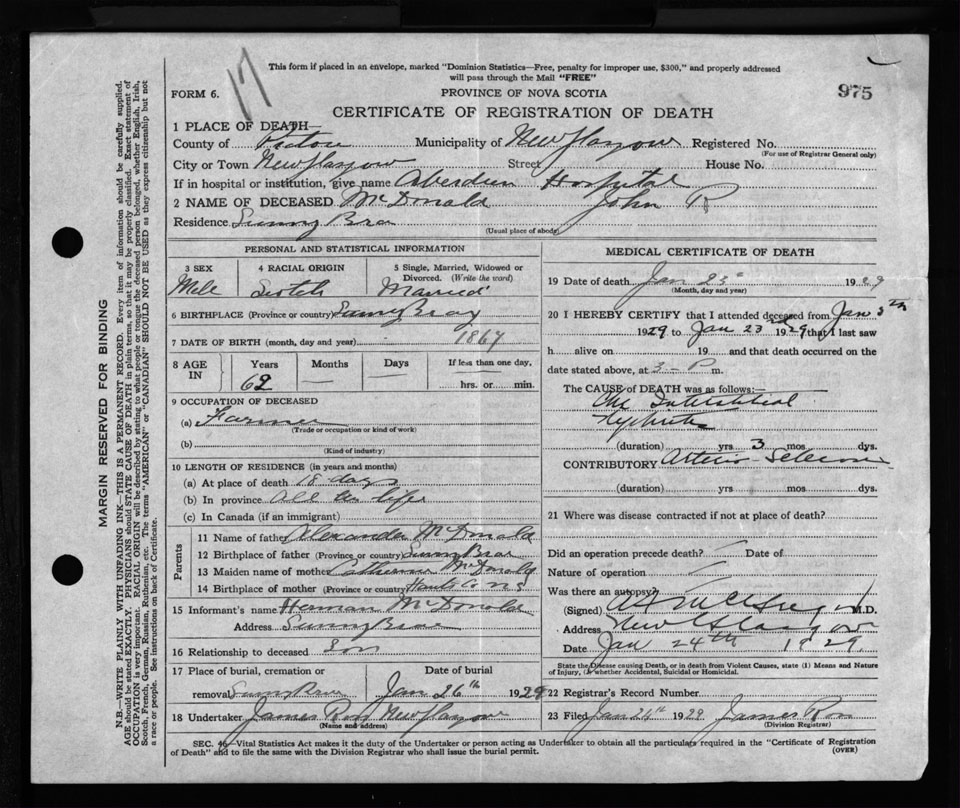 17
This form if placed in an envelope, marked "Dominion Statistics—Free, penalty for improper use, $300," and properly addressed
will pass through the Mail "FREE"
FORM 6.
PROVINCE OF NOVA SCOTIA
975
CERTIFICATE OF REGISTRATION OF DEATH
1 PLACE OF DEATH—
County of Pictou Municipality of New Glasgow Registered No.
(For use of Registrar General only)
City or Town New Glasgow Street House No.
If in hospital or institution, give name Aberdeen Hospital
2 NAME OF DECEASED McDonald John R
Residence Sunny Brae
(Usual place of abode)
PERSONAL AND STATISTICAL INFORMATION
3 SEX 4 RACIAL ORIGIN 5 Single, Married, Widowed or Divorced. (Write the word)
Male Scotch Married
6 BIRTHPLACE (Province or country) Sunny Brae
7 DATE OF BIRTH (month, day and year) 1867
8 AGE IN Years Months Days If less than one day,
62 — — hrs. or min.
9 OCCUPATION OF DECEASED
(a) Farmer
(Trade or occupation or kind of work)
(b)
(Kind of industry)
10 LENGTH OF RESIDENCE (in years and months)
(a) At place of death 18 days
(b) In province All his life
(c) In Canada (if an immigrant)
Parents
11 Name of father Alexander McDonald
12 Birthplace of father (Province or country) Sunny Brae
13 Maiden name of mother Catherine McDonald
14 Birthplace of mother (Province or country) Hants Co NS
15 Informant's name Herman McDonald
Address Sunny Brae
16 Relationship to deceased Son
17 Place of burial, cremation or removal Sunny Brae
Date of burial
Jan 26th 1929
18 Undertaker James Ross New Glasgow
(Name and address)
MEDICAL CERTIFICATE OF DEATH
19 Date of death Jan 23 1929
(Month, day and year)
20 I HEREBY CERTIFY that I attended deceased from Jan 5th
1929 to Jan 23rd 1929, that I last saw
h alive on 19 and that death occurred on
date stated above, at 3 - P m.
The CAUSE of DEATH was as follows:—
Chr Interstitial
Nephritis
(duration) yrs 3 mos dys.
CONTRIBUTORY Arterio Sclerosis
(duration) yrs mos dys.
21 Where was disease contracted if not at place of death?
Did an operation precede death? Date of
Nature of operation
Was there an autopsy?
(Signed) M.D.
Address New Glasgow
Date Jan 24th 1929.
State the Disease causing Death, or in death from Violent Causes, state (1) Means and Nature
of Injury, (2) whether Accidental, Suicidal or Homicidal.
22 Registrar's Record Number
23 Filed Jan 26th 1929 James Ross
(Division Registrar)
SEC. 46—Vital Statistics Act makes it the duty of the Undertaker or person acting as Undertaker to obtain all the particulars required in the "Certificate of Registration
of Death" and to file the same with the Division Registrar who shall issue the burial permit.
(OVER)
MARGIN RESERVED FOR BINDING
N.B.—WRITE PLAINLY WITH UNFADING INK—THIS IS A PERMANENT RECORD. Every item of information should be carefully supplied.
AGE should be stated EXACTLY. PHYSICIANS should STATE CAUSE OF DEATH in plain terms, so that it may be properly classified. Exact statement of
OCCUPATION is very important. RACIAL ORIGIN will be described by stating to what people or tongue the deceased person belonged, whether English, Irish,
Scotch, French, German, Russian, Ruthenian, etc. The terms "AMERICAN" or "CANADIAN" SHOULD NOT BE USED as they express citizenship but not
a race or people. See instructions on back of Certificate.